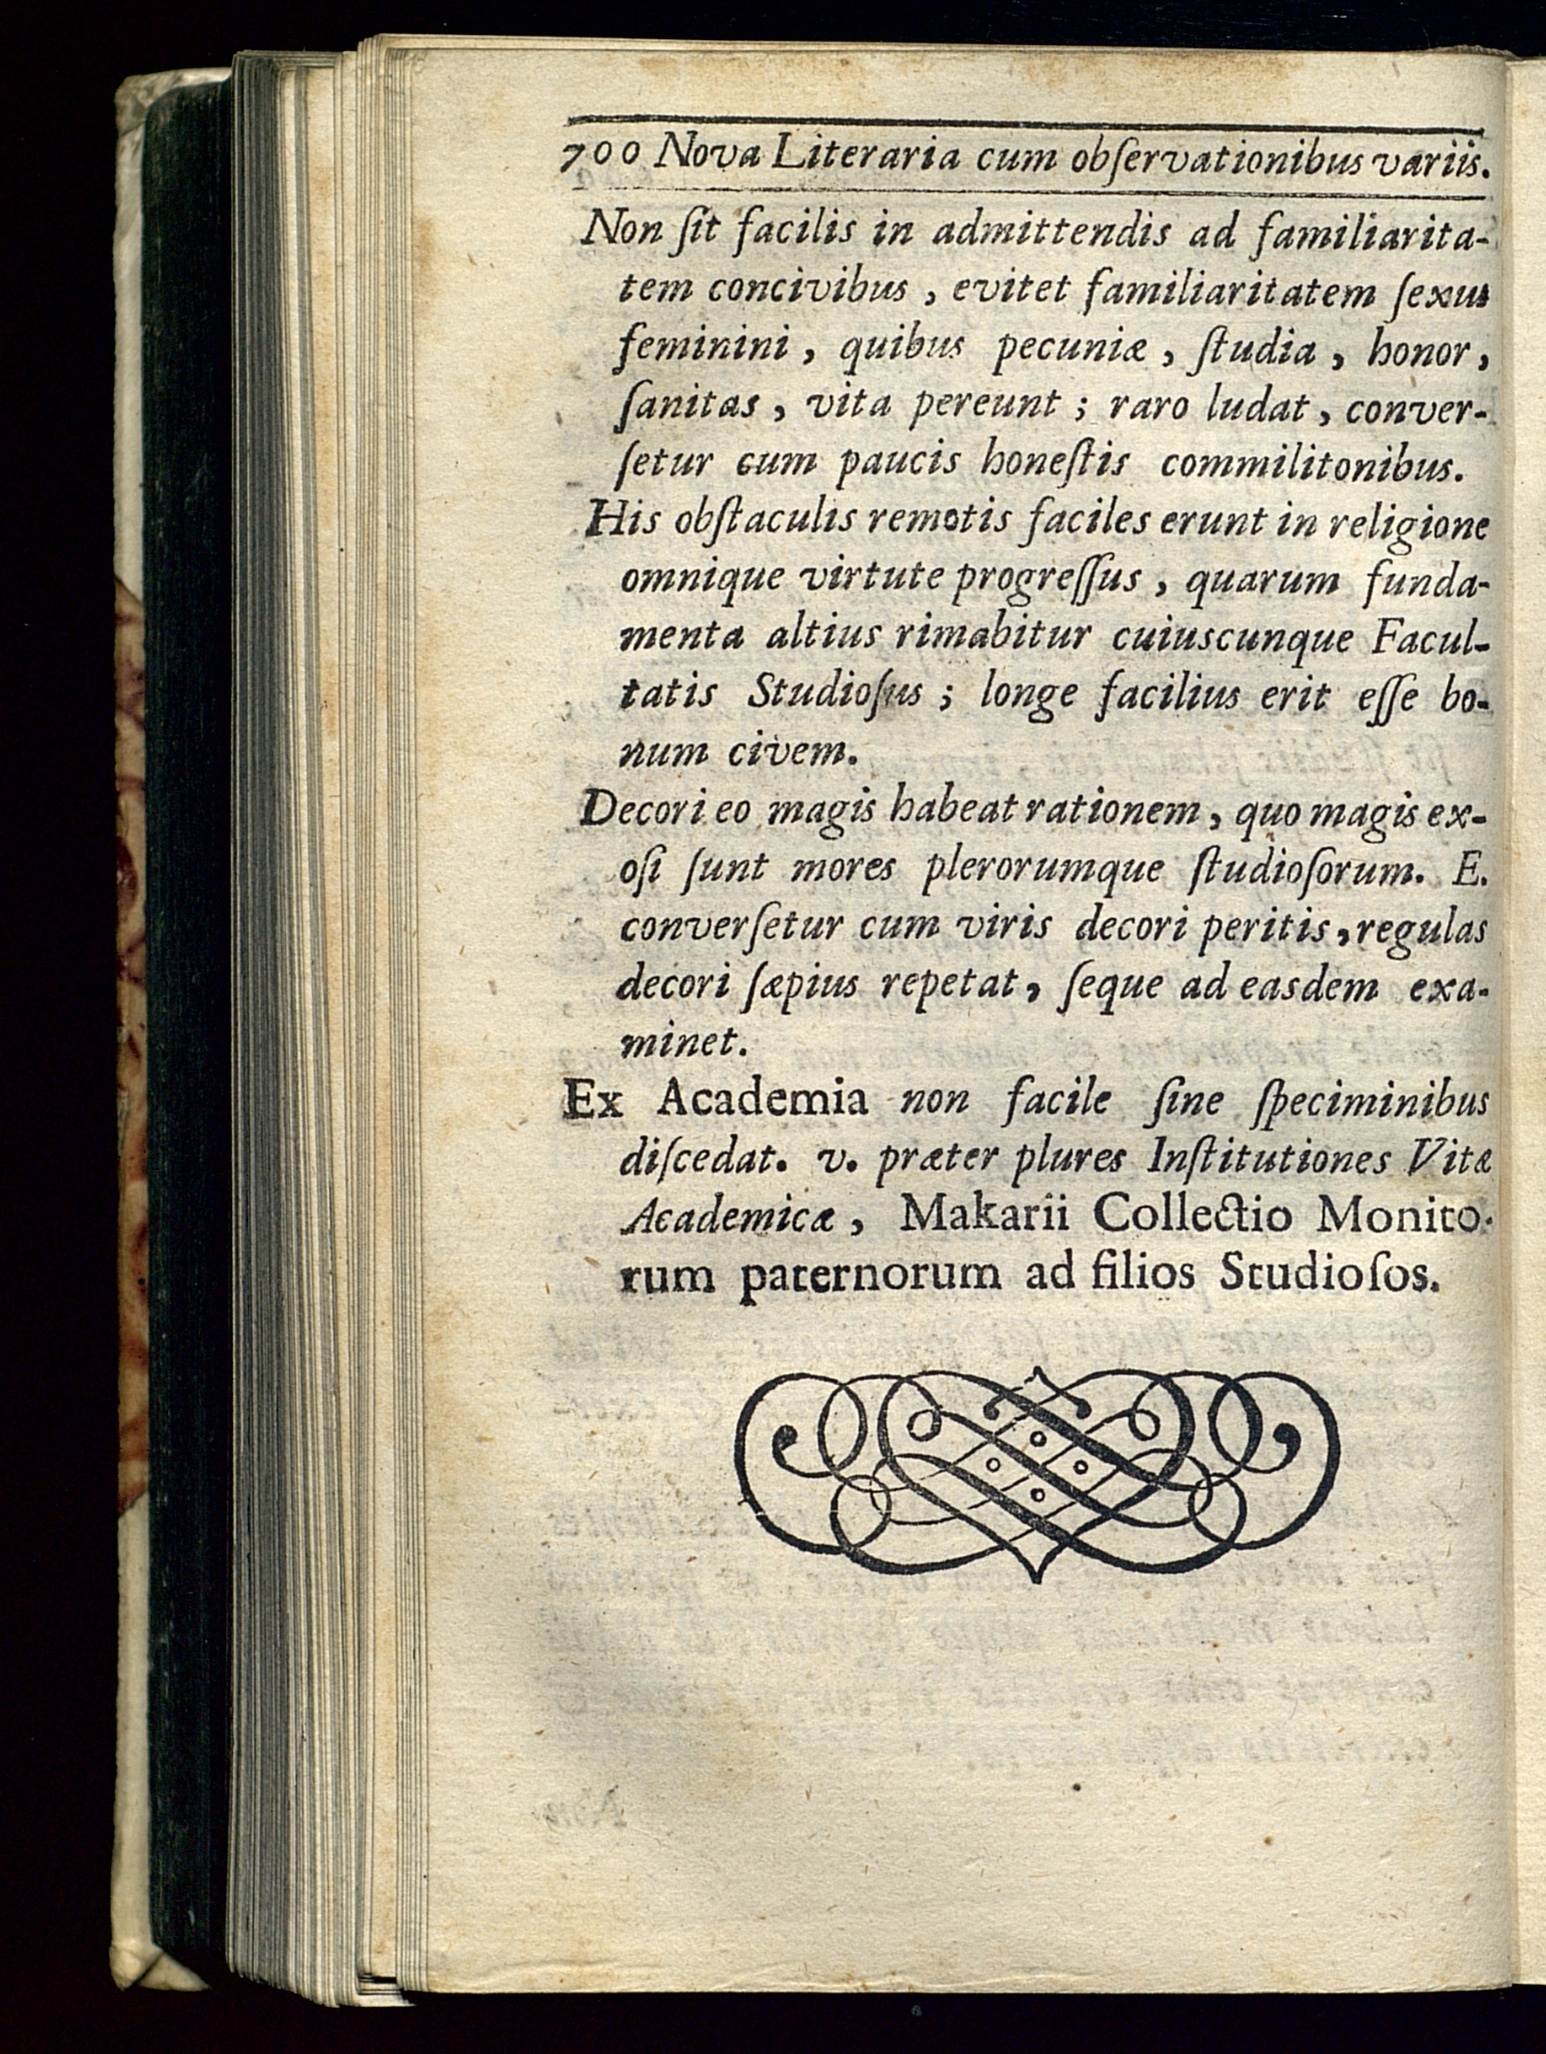 700 Nova Literaria cum obſervationibus variis.
Non ſit facilis in admittendis ad familiarita-
tem concivibus, evitet familiaritatem ſexus
feminini, quibus pecuniæ, ſtudia, honor,
ſanitas, vita pereunt; raro ludat, conver-
ſetur cum paucis honeſtis commilitonibus.
His obſtaculis remotis faciles erunt in religione
omnique virtute progreſſus, quarum funda-
menta altius rimabitur cuiuscunque Facul-
tatis Studioſus; longe facilius erit eſſe bo-
num civem.
Decori eo magis habeat rationem, quo magis ex-
oſi ſunt mores plerorumque ſtudioſorum. E.
converſetur cum viris decori peritis, regulas
decori ſæpius repetat, ſeque ad easdem exa-
minet.
Ex Academia non facile ſine ſpeciminibus
diſcedat. v. præter plures Inſtitutiones Vitæ
Academicæ, Makarii Collectio Monito-
rum paternorum ad filios Studioſos.